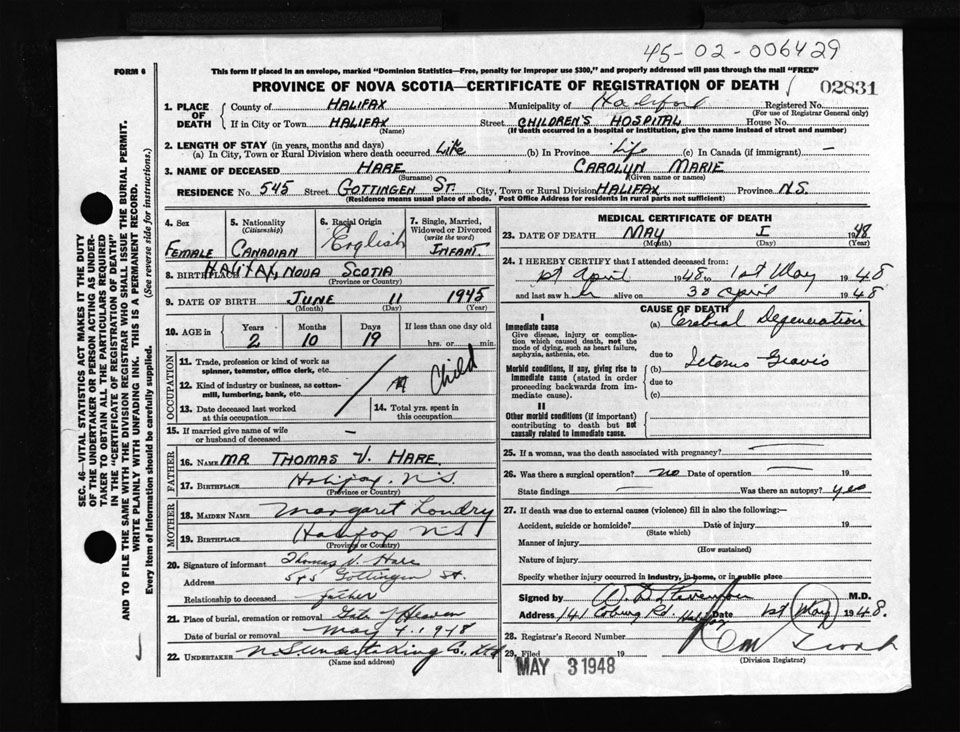 45-02-006429
FORM 6
This form if placed in an envelope, marked "Dominion Statistics—Free, penalty for improper use $300," and properly addressed will pass through the mail "FREE"
PROVINCE OF NOVA SCOTIA—CERTIFICATE OF REGISTRATION OF DEATH
02831
1. PLACE OF DEATH
County of HALIFAX Municipality of Registered No.
(For use of Registrar General only)
If in City or Town HALIFAX Street CHILDREN'S HOSPITAL House No.
(Name) (If death occurred in a hospital or institution, give the name instead of street and number)
2. LENGTH OF STAY (in years, months and days)
(a) In City, Town or Rural Division where death occurred Life (b) In Province Life (c) In Canada (if immigrant) —
3. NAME OF DECEASED HARE CAROLYN MARIE
(Surname) (Given name or names)
RESIDENCE No. 545 Street GOTTINGEN ST. City, Town or Rural Division HALIFAX Province N.S.
(Residence means usual place of abode. Post Office Address for residents in rural parts not sufficient)
4. Sex 5. Nationality (Citizenship) 6. Racial Origin 7. Single, Married, Widowed or Divorced (write the word)
FEMALE CANADIAN English INFANT.
8. BIRTHPLACE HALIFAX, NOVA SCOTIA
(Province or Country)
9. DATE OF BIRTH JUNE 11 1945
(Month) (Day) (Year)
10. AGE in Years Months Days If less than one day old
2 10 19 hrs. or min.
OCCUPATION
11. Trade, profession or kind of work as spinner, teamster, office clerk, etc.
12. Kind of industry or business, as cotton-mill, lumbering, bank, etc.
Child
13. Date deceased last worked at this occupation
14. Total yrs. spent in this occupation
15. If married give name of wife or husband of deceased —
FATHER
16. NAME MR. THOMAS V. HARE.
17. BIRTHPLACE Halifax, N.S.
(Province or Country)
MOTHER
18. MAIDEN NAME Margaret Landry
19. BIRTHPLACE Halifax N S
(Province or Country)
20. Signature of informant Thomas V. Hare
Address 545 Gottingen St.
Relationship to deceased father
21. Place of burial, cremation or removal Gate of Heaven
Date of burial or removal May 4. 1948
22. UNDERTAKER N.S. Undertaking Co., Ltd
(Name and address)
MEDICAL CERTIFICATE OF DEATH
23. DATE OF DEATH MAY I 1948
(Month) (Day) (Year)
24. I HEREBY CERTIFY that I attended deceased from:
1st April 1948 to 1st May 1948
and last saw her alive on 30 April 1948
CAUSE OF DEATH
I
Immediate cause (a) Cerebral Degeneration
Give disease, injury or complication which caused death, not the mode of dying, such as heart failure, asphyxia, asthenia, etc.
due to
Icterus Gravis
Morbid conditions, if any, giving rise to immediate cause (stated in order proceeding backwards from immediate cause).
(b)
due to
(c)
II
Other morbid conditions (if important) contributing to death but not causally related to immediate cause.
25. If a woman, was the death associated with pregnancy? —
26. Was there a surgical operation? no Date of operation — 19
State findings — Was there an autopsy? yes
27. If death was due to external causes (violence) fill in also the following:—
Accident, suicide or homicide? Date of injury 19
(State which)
Manner of injury
(How sustained)
Nature of injury
Specify whether injury occurred in industry, in home, or in public place
Signed by M.D.
Address 141 Coburg Rd. Halifax Date 1st May 1948.
28. Registrar's Record Number
29. Filed 19
MAY 3 1948
(Division Registrar)
SEC. 46—VITAL STATISTICS ACT MAKES IT THE DUTY
OF THE UNDERTAKER OR PERSON ACTING AS UNDERTAKER TO OBTAIN ALL THE PARTICULARS REQUIRED
IN THE "CERTIFICATE OF REGISTRATION OF DEATH"
AND TO FILE THE SAME WITH THE DIVISION REGISTRAR WHO SHALL ISSUE THE BURIAL PERMIT.
WRITE PLAINLY WITH UNFADING INK. THIS IS A PERMANENT RECORD.
Every item of information should be carefully supplied. (See reverse side for instructions.)